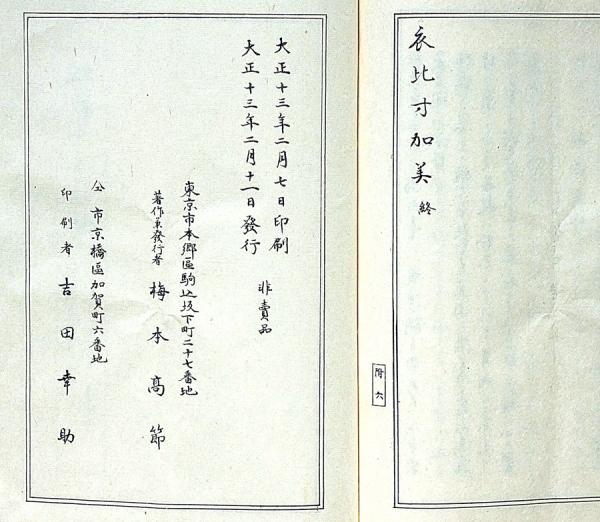 衣比寸加美 終
附六
大正十三年二月七日印刷
大正十三年二月十一日發行
非賣品
東京市本郷區駒込坂下町二十七番地
著作兼發行者 梅本髙節
仝 市京橋區加賀町六番地
印刷者 吉田幸助